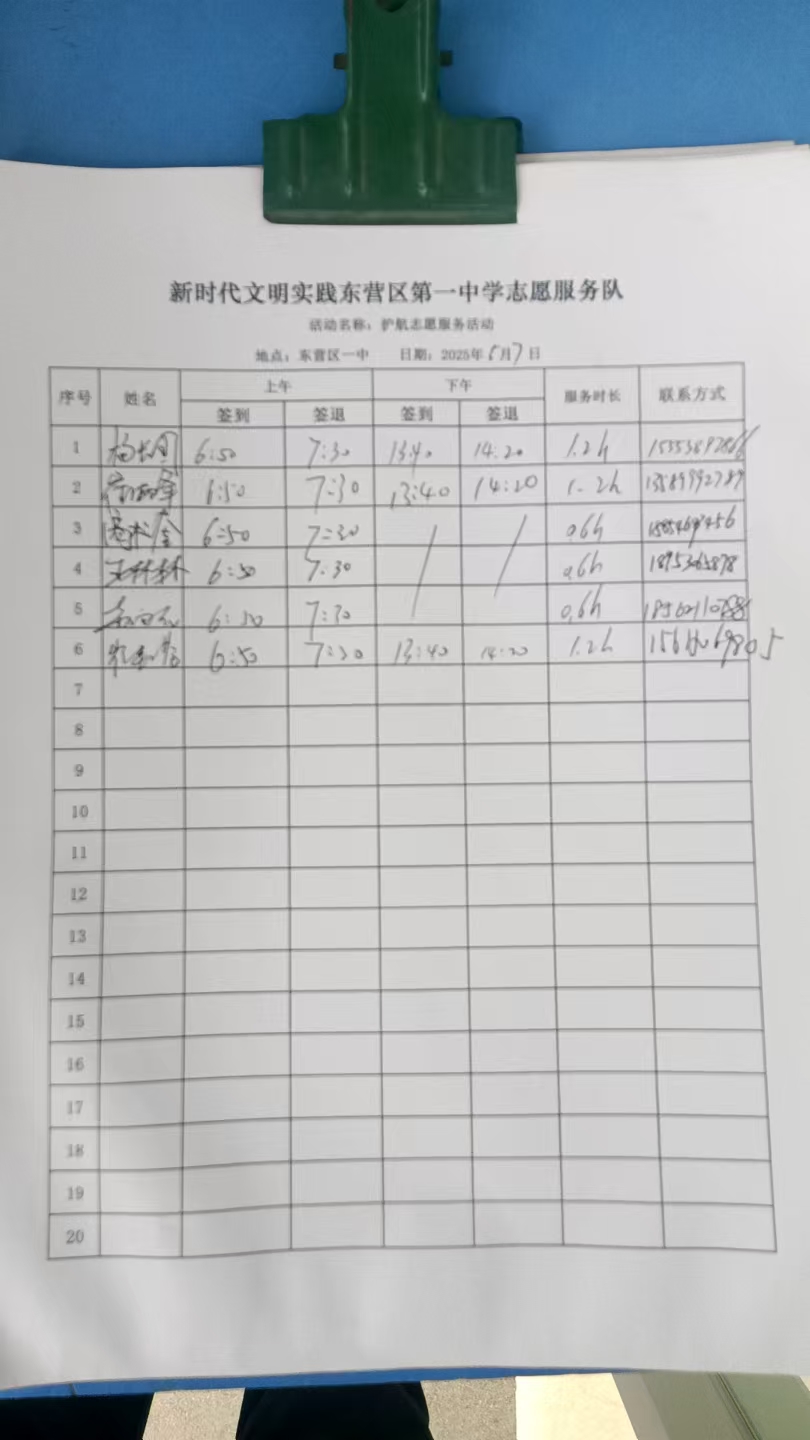 新时代文明实践东营区第一中学志愿服务队
活动名称：护航志愿服务活动
地点：东营区一中 日期：2025年5月7日
序号 姓名 上午 下午 服务时长 联系方式
签到 签退 签到 签退
1 6:50 7:30 13:40 14:20 1.2h
2 6:50 7:30 13:40 14:20 1.2h 13589992789
3 6:50 7:30 / / 0.6h
4 6:50 7:30 0.6h
5 6:50 7:30 0.6h
6 6:50 7:30 13:40 14:20 1.2h
7
8
9
10
11
12
13
14
15
16
17
18
19
20